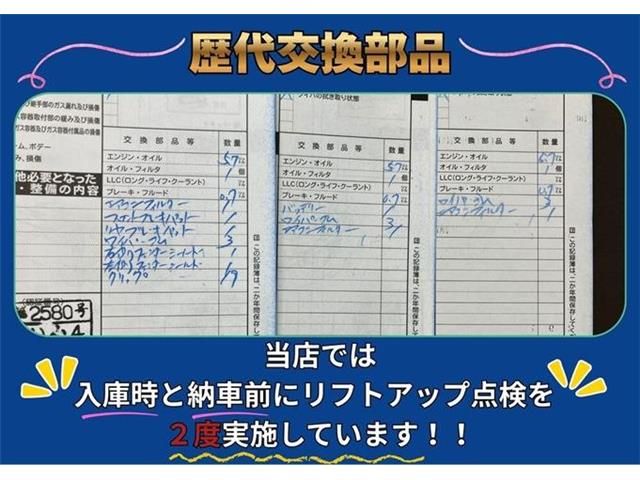 歴代交換部品
び継手部のガス漏れ及び損傷
ス容器取付部の緩み及び損傷
ガス容器及びガス容器付属品の損傷
ム、ボデー
み、損傷
他必要となった
・整備の内容
2580号
交換部品等 数量
エンジン・オイル 5.7
オイル・フィルタ 1個
LLC(ロング・ライフ・クーラント)
ブレーキ・フルード 0.7
エアコンフィルター 1
フロントブレーキパット 1
リヤブレーキパット
ワイパーゴム 3
クリップ
ワイパの拭き取り状態
交換部品等 数量
エンジン・オイル 5.7
オイル・フィルタ 1個
LLC(ロング・ライフ・クーラント)
ブレーキ・フルード 0.7
バッテリー
ワイパーゴム 3
エアコンフィルター 1
交換部品等 数量
エンジン・オイル 5.7
オイル・フィルタ 1個
LLC(ロング・ライフ・クーラント)
ブレーキ・フルード 0.7
ワイパーゴム 3
エアコンフィルター 1
当店では
入庫時と納車前にリフトアップ点検を
２度実施しています！！